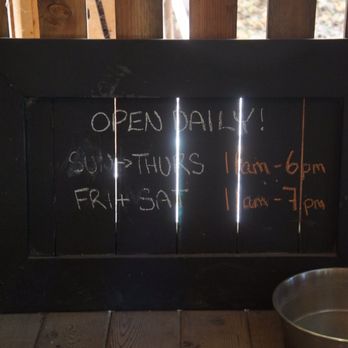 OPEN DAILY!
SUN→THURS 11am-6pm
FRI+SAT 11am-7pm